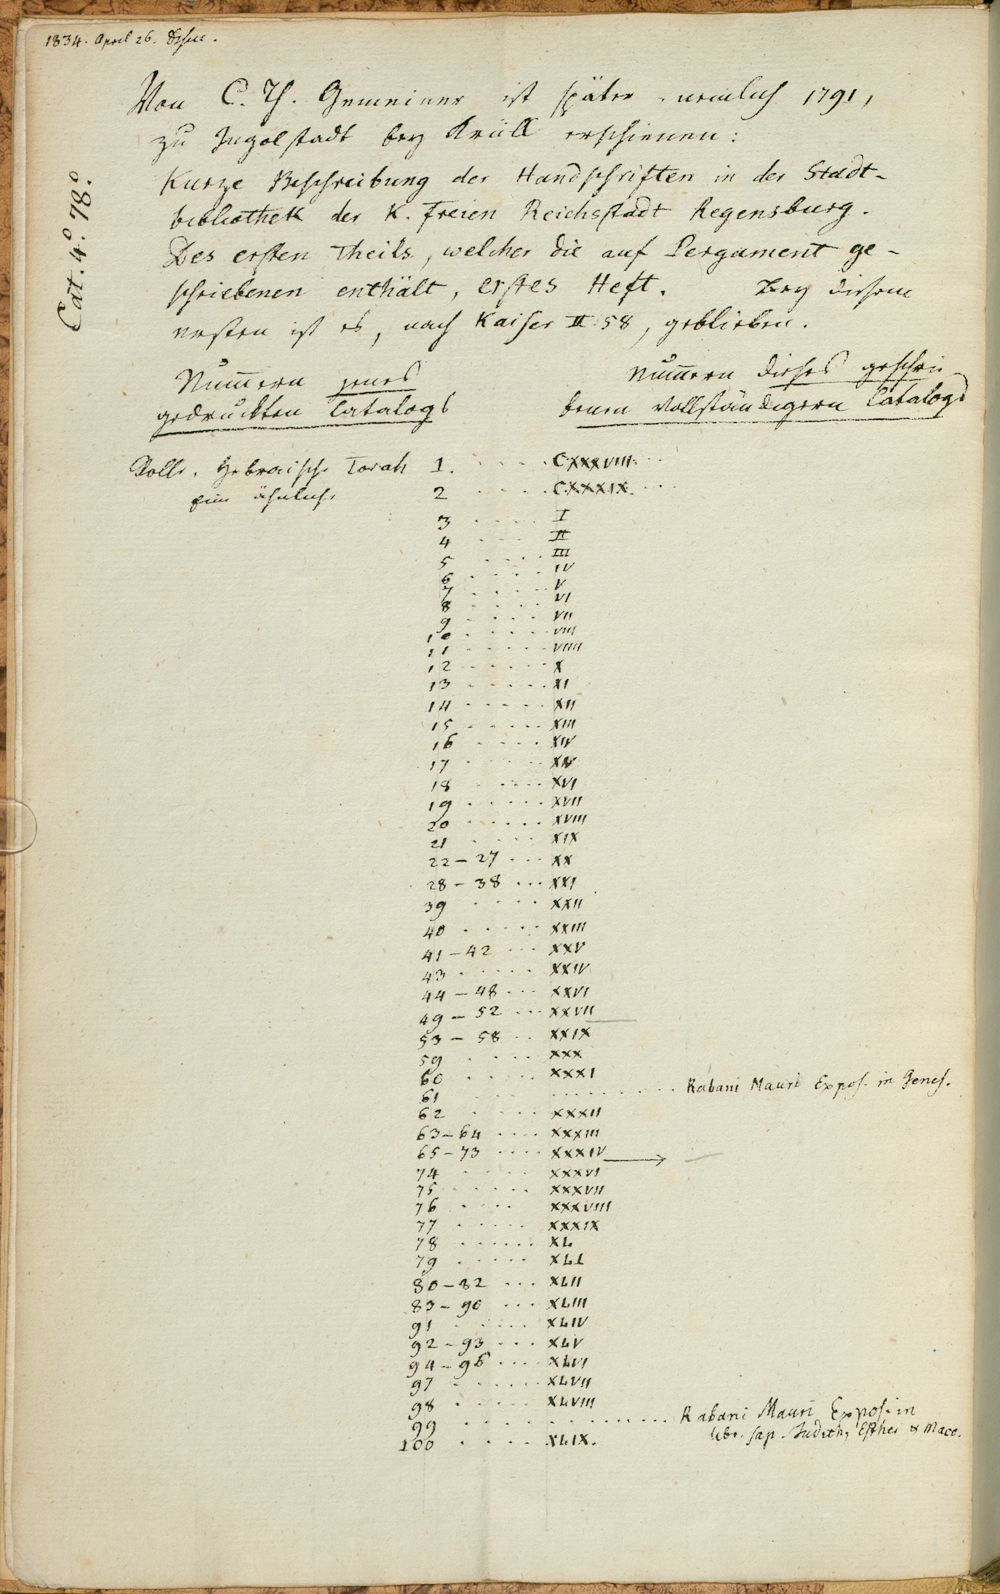 1834. April 26.
Cat. 4.° 78.°
Von C. Th. Gemeiner ist später, nemlich 1791,
zu Ingolstadt bey Krüll erschienen:
Kurze Beschreibung der Handschriften in der Stadt-
bibliothek der K. freien Reichsstadt Regensburg.
Des ersten Theils, welcher die auf Pergament ge-
schriebenen enthält, erstes Heft. Bey diesem
ersten ist es, nach Kaiser II. 58, geblieben.
Num̄ern jenes
gedruckten Catalogs
Num̄ern dieses geschrie-
benen vollständigern Catalogs
Rolle. Hebraische Torah 1. . . . . . CXXXVIII. . .
Eine ähnliche 2 . . . . . CXXXIX. . . .
3 . . . . I
4 . . . II
5 . . . III
6 . . . . IV
7 . . . . V
8 . . . . VI
9 . . . . VII
10 . . . . . VIII
11 . . . . . VIIII
12 . . . . . X
13 . . . . . XI
14 . . . . . XII
15 . . . . . XIII
16 . . . . XIV
17 . . . . XV
18 . . . . XVI
19 . . . . . XVII
20 . . . . . XVIII
21 . . . . XIX
22 – 27 . . . XX
28 – 38 . . . XXI
39 . . . . XXII
40 . . . . . XXIII
41 – 42 . . . XXV
43 . . . . . XXIV
44 – 48 . . . XXVI
49 – 52 . . . XXVII
53 – 58 . . XXIX
59 . . . . XXX
60 . . . . XXXI
61 . . . . . . . . . . . Rabani Mauri Expos. in Genes.
62 . . . . XXXII
63 – 64 . . . . XXXIII
65 – 73 . . . . XXXIV →
74 . . . . XXXVI
75 . . . . . XXXVII
76 . . . . XXXVIII
77 . . . . . XXXIX
78 . . . . . . XL
79 . . . . . XLI
80 – 82 . . . XLII
83 – 90 . . . XLIII
91 . . . . XLIV
92 – 93 . . . XLV
94 – 96 . . . . XLVI
97 . . . . . XLVII
98 . . . . . XLVIII
99 . . . . . . . . . . . . Rabani Mauri Expos. in
libr. sap. Judith, Esther & Macc.
100 . . . . XLIX.